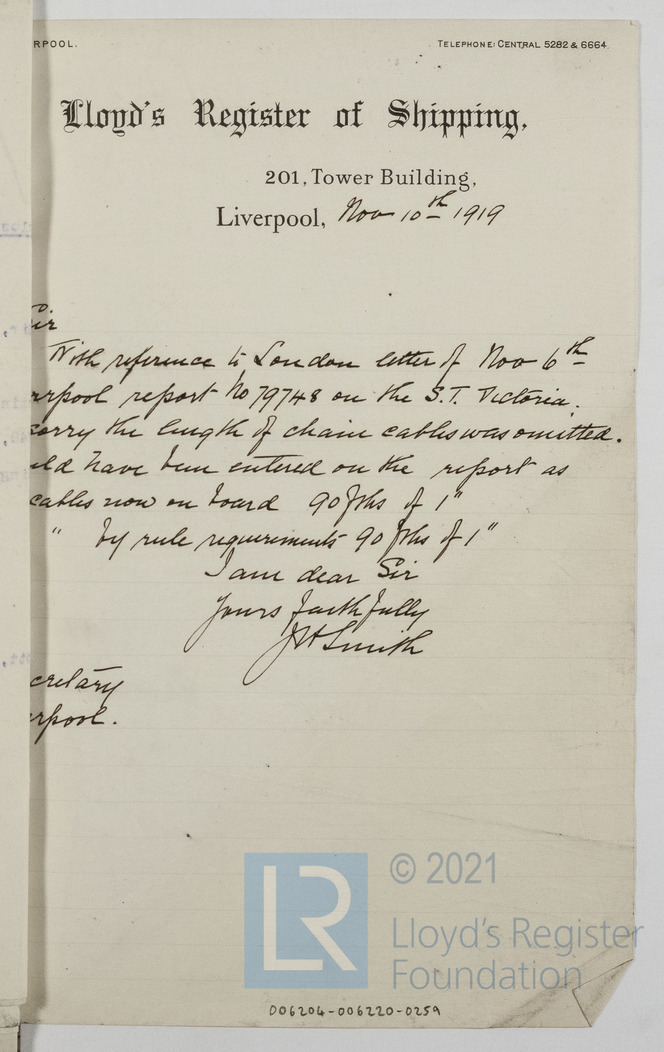 RPOOL.
TELEPHONE: CENTRAL 5282 & 6664.
Lloyd's Register of Shipping,
201, Tower Building,
Liverpool, Nov 10th 1919
Sir
With reference to London letter of Nov 6th
rpool report No 79748 on the S.T. Victoria.
sorry the length of chain cables was omitted.
uld have been entered on the report as
cables now on board 90 fths of 1"
" by rule requirements 90 fths of 1"
I am dear Sir
Yours faithfully
JH Smith
cretary
rpool.
LR
© 2021
Lloyd's Register
Foundation
006204-006220-0259